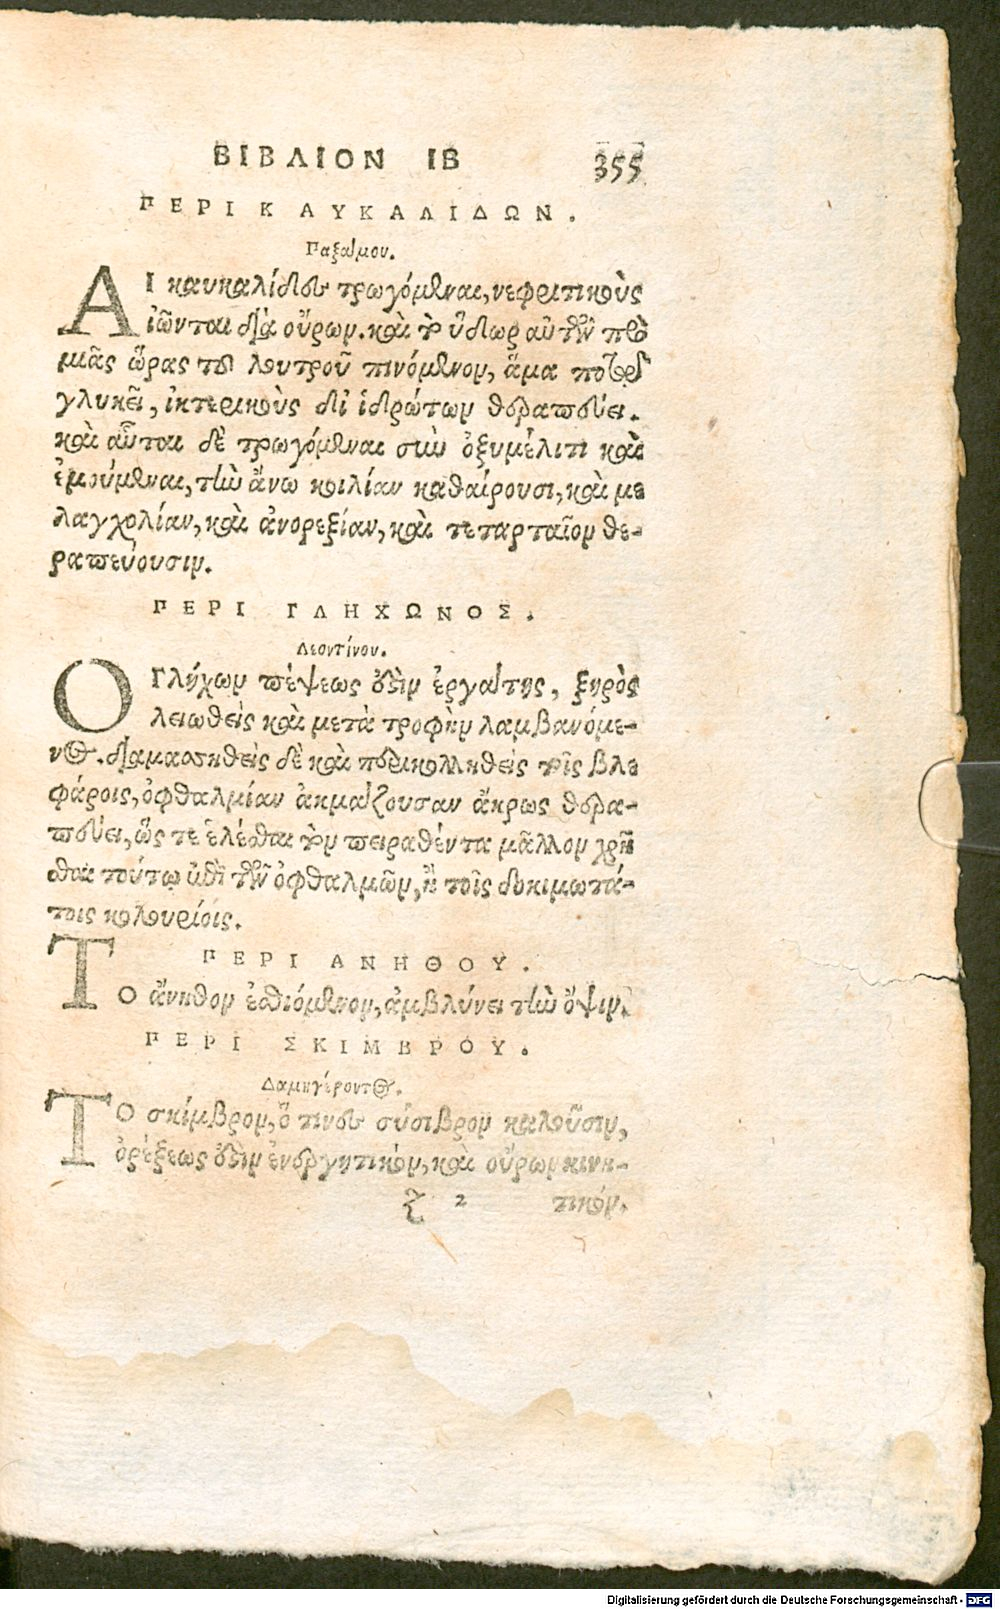 ΒΙΒΛΙΟΝ ΙΒ 355
ΠΕΡΙ ΚΑΥΚΑΛΙΔΩΝ.
Παξάμου.
ΑΙ καυκαλίδες τρωγόμεναι, νεφριτικοὺς
ἰῶνται διὰ οὔρων. καὶ τὸ ὕδωρ αὐτῶν πρὸ
μιᾶς ὥρας τοῦ λουτροῦ πινόμενον, ἅμα
γλυκεῖ, ἰκτερικοὺς δι' ἱδρώτων θεραπεύει.
καὶ αὗται δὲ τρωγόμεναι σὺν ὀξυμέλιτι καὶ
ἐμούμεναι, τὴν ἄνω κοιλίαν καθαίρουσι, καὶ με
λαγχολίαν, καὶ ἀνορεξίαν, καὶ τεταρταῖον θε-
ραπεύουσιν.
ΠΕΡΙ ΓΛΗΧΩΝΟΣ.
Λεοντίνου.
Ο Γλήχων πέψεως ἐστὶν ἐργάτης, ξηρὸς
λειωθεὶς καὶ μετὰ τροφὴν λαμβανόμε-
νος. διαμασηθεὶς δὲ καὶ προσκολληθεὶς τοῖς βλε
φάροις, ὀφθαλμίαν ἀκμάζουσαν ἄκρως θερα-
πεύει, ὥς τε ἑλέσθαι τὸν πειραθέντα μᾶλλον χρῆ
σθαι τούτῳ ἐπὶ τῶν ὀφθαλμῶν, ἢ τοῖς δοκιμωτά-
τοις κολουρίοις.
ΠΕΡΙ ΑΝΗΘΟΥ.
ΤΟ ἄνηθον ἐσθιόμενον, ἀμβλύνει τὴν ὄψιν.
ΠΕΡΙ ΣΚΙΜΒΡΟΥ.
Δαμηγέροντος.
ΤΟ σκίμβρον, ὅ τινες σύσιβρον καλοῦσιν,
ὀρέξεως ἐστὶν ἐνεργητικόν, καὶ οὔρων κινη-
ζ 2 τικόν.
Digitalisierung gefördert durch die Deutsche Forschungsgemeinschaft - DFG